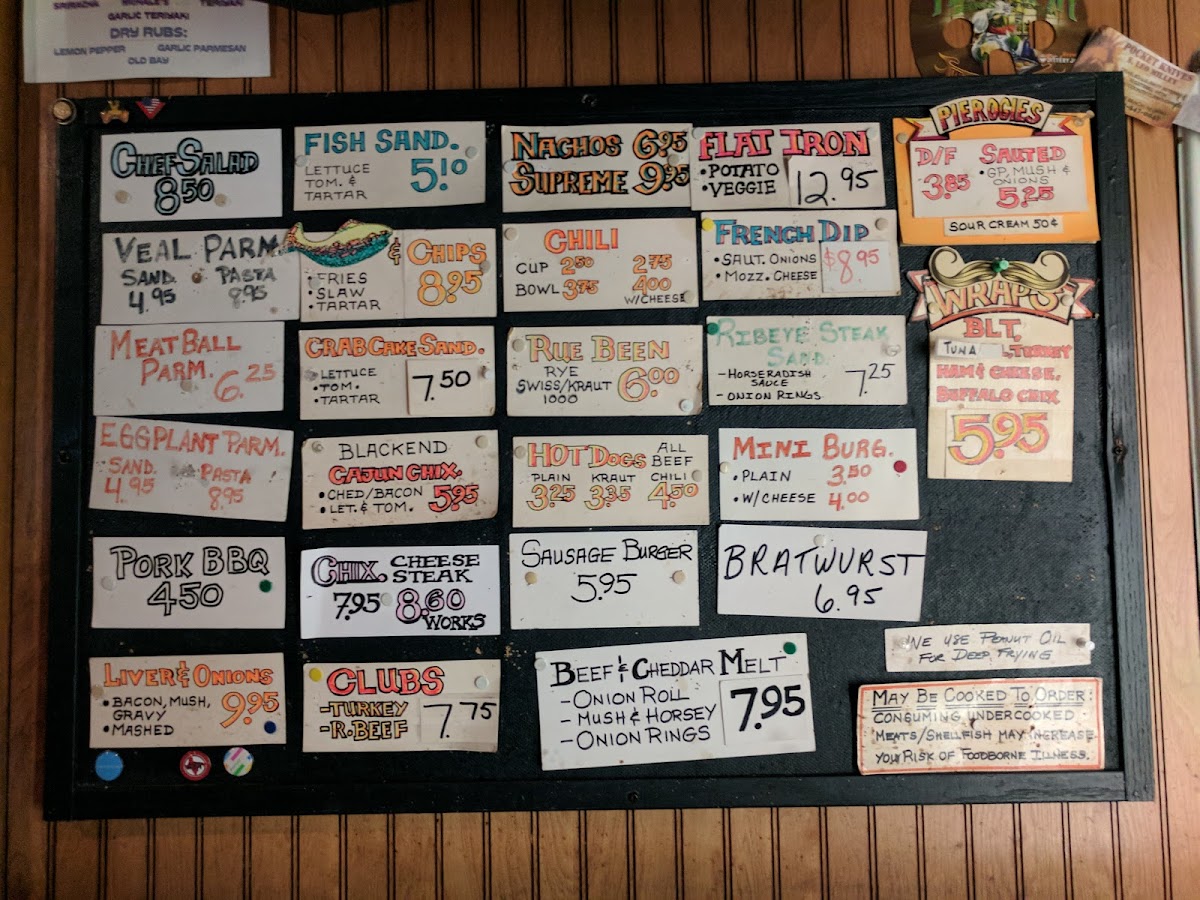 GARLIC TERIYAKI
DRY RUBS:
LEMON PEPPER GARLIC PARMESAN
OLD BAY
POCKET KNIVES
CHEF SALAD
8.50
FISH SAND.
LETTUCE
TOM. &
TARTAR
5.10
NACHOS 6.95
SUPREME 9.95
FLAT IRON
• POTATO
• VEGGIE
12.95
PIEROGIES
D/F
3.85
SAUTED
• GP, MUSH &
ONIONS
5.25
SOUR CREAM 50¢
VEAL PARM.
SAND. PASTA
4.95 8.95
& CHIPS
FRIES
• SLAW
• TARTAR
8.95
CHILI
CUP 2.50 2.75
BOWL 3.75 4.00
W/CHEESE
FRENCH DIP
• SAUT. ONIONS
• MOZZ. CHEESE
$8.95
WRAPS
BLT,
TUNA L, TURKEY
HAM & CHEESE,
BUFFALO CHIX
5.95
MEAT BALL
PARM. 6.25
CRAB CAKE SAND.
• LETTUCE
• TOM.
• TARTAR
7.50
RUE BEEN
RYE
SWISS/KRAUT
1000
6.00
RIBEYE STEAK
SAND.
- HORSERADISH
SAUCE
- ONION RINGS
7.25
EGGPLANT PARM.
SAND. PASTA
4.95 8.95
BLACKEND
CAJUN CHIX.
• CHED/BACON
• LET. & TOM.
5.95
HOT DOGS ALL
BEEF
PLAIN KRAUT CHILI
3.25 3.35 4.50
MINI BURG.
• PLAIN 3.50
• W/CHEESE 4.00
PORK BBQ
4.50
CHIX. CHEESE
STEAK
7.95 8.60
WORKS
SAUSAGE BURGER
5.95
BRATWURST
6.95
LIVER & ONIONS
• BACON, MUSH,
GRAVY
• MASHED
9.95
CLUBS
- TURKEY
- R. BEEF
7.75
BEEF & CHEDDAR MELT
- ONION ROLL
- MUSH & HORSEY
- ONION RINGS
7.95
WE USE PEANUT OIL
FOR DEEP FRYING
MAY BE COOKED TO ORDER:
CONSUMING UNDERCOOKED
MEATS/SHELLFISH MAY INCREASE
YOUR RISK OF FOODBORNE ILLNESS.